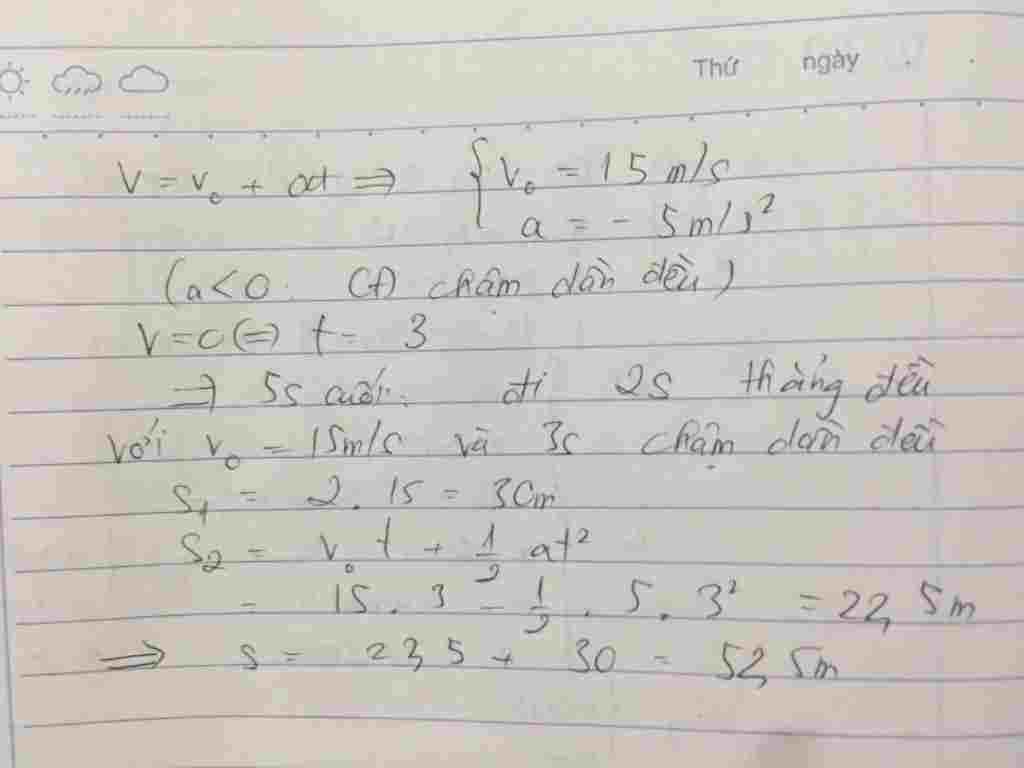 Thứ ngày
V = v₀ + at ⇒ { v₀ = 15 m/s
a = - 5m/s²
(a<0. CĐ chậm dần đều)
V=0 (=) t = 3
⇒ 5s cuối. đi 2s thẳng đều
với v₀ = 15m/s và 3s chậm dần đều
S₁ = 2.15 = 30m
S₂ = v₀ t + 1/2 at²
= 15.3 - 1/2 . 5.3² = 22,5m
⇒ s = 22,5 + 30 = 52,5m